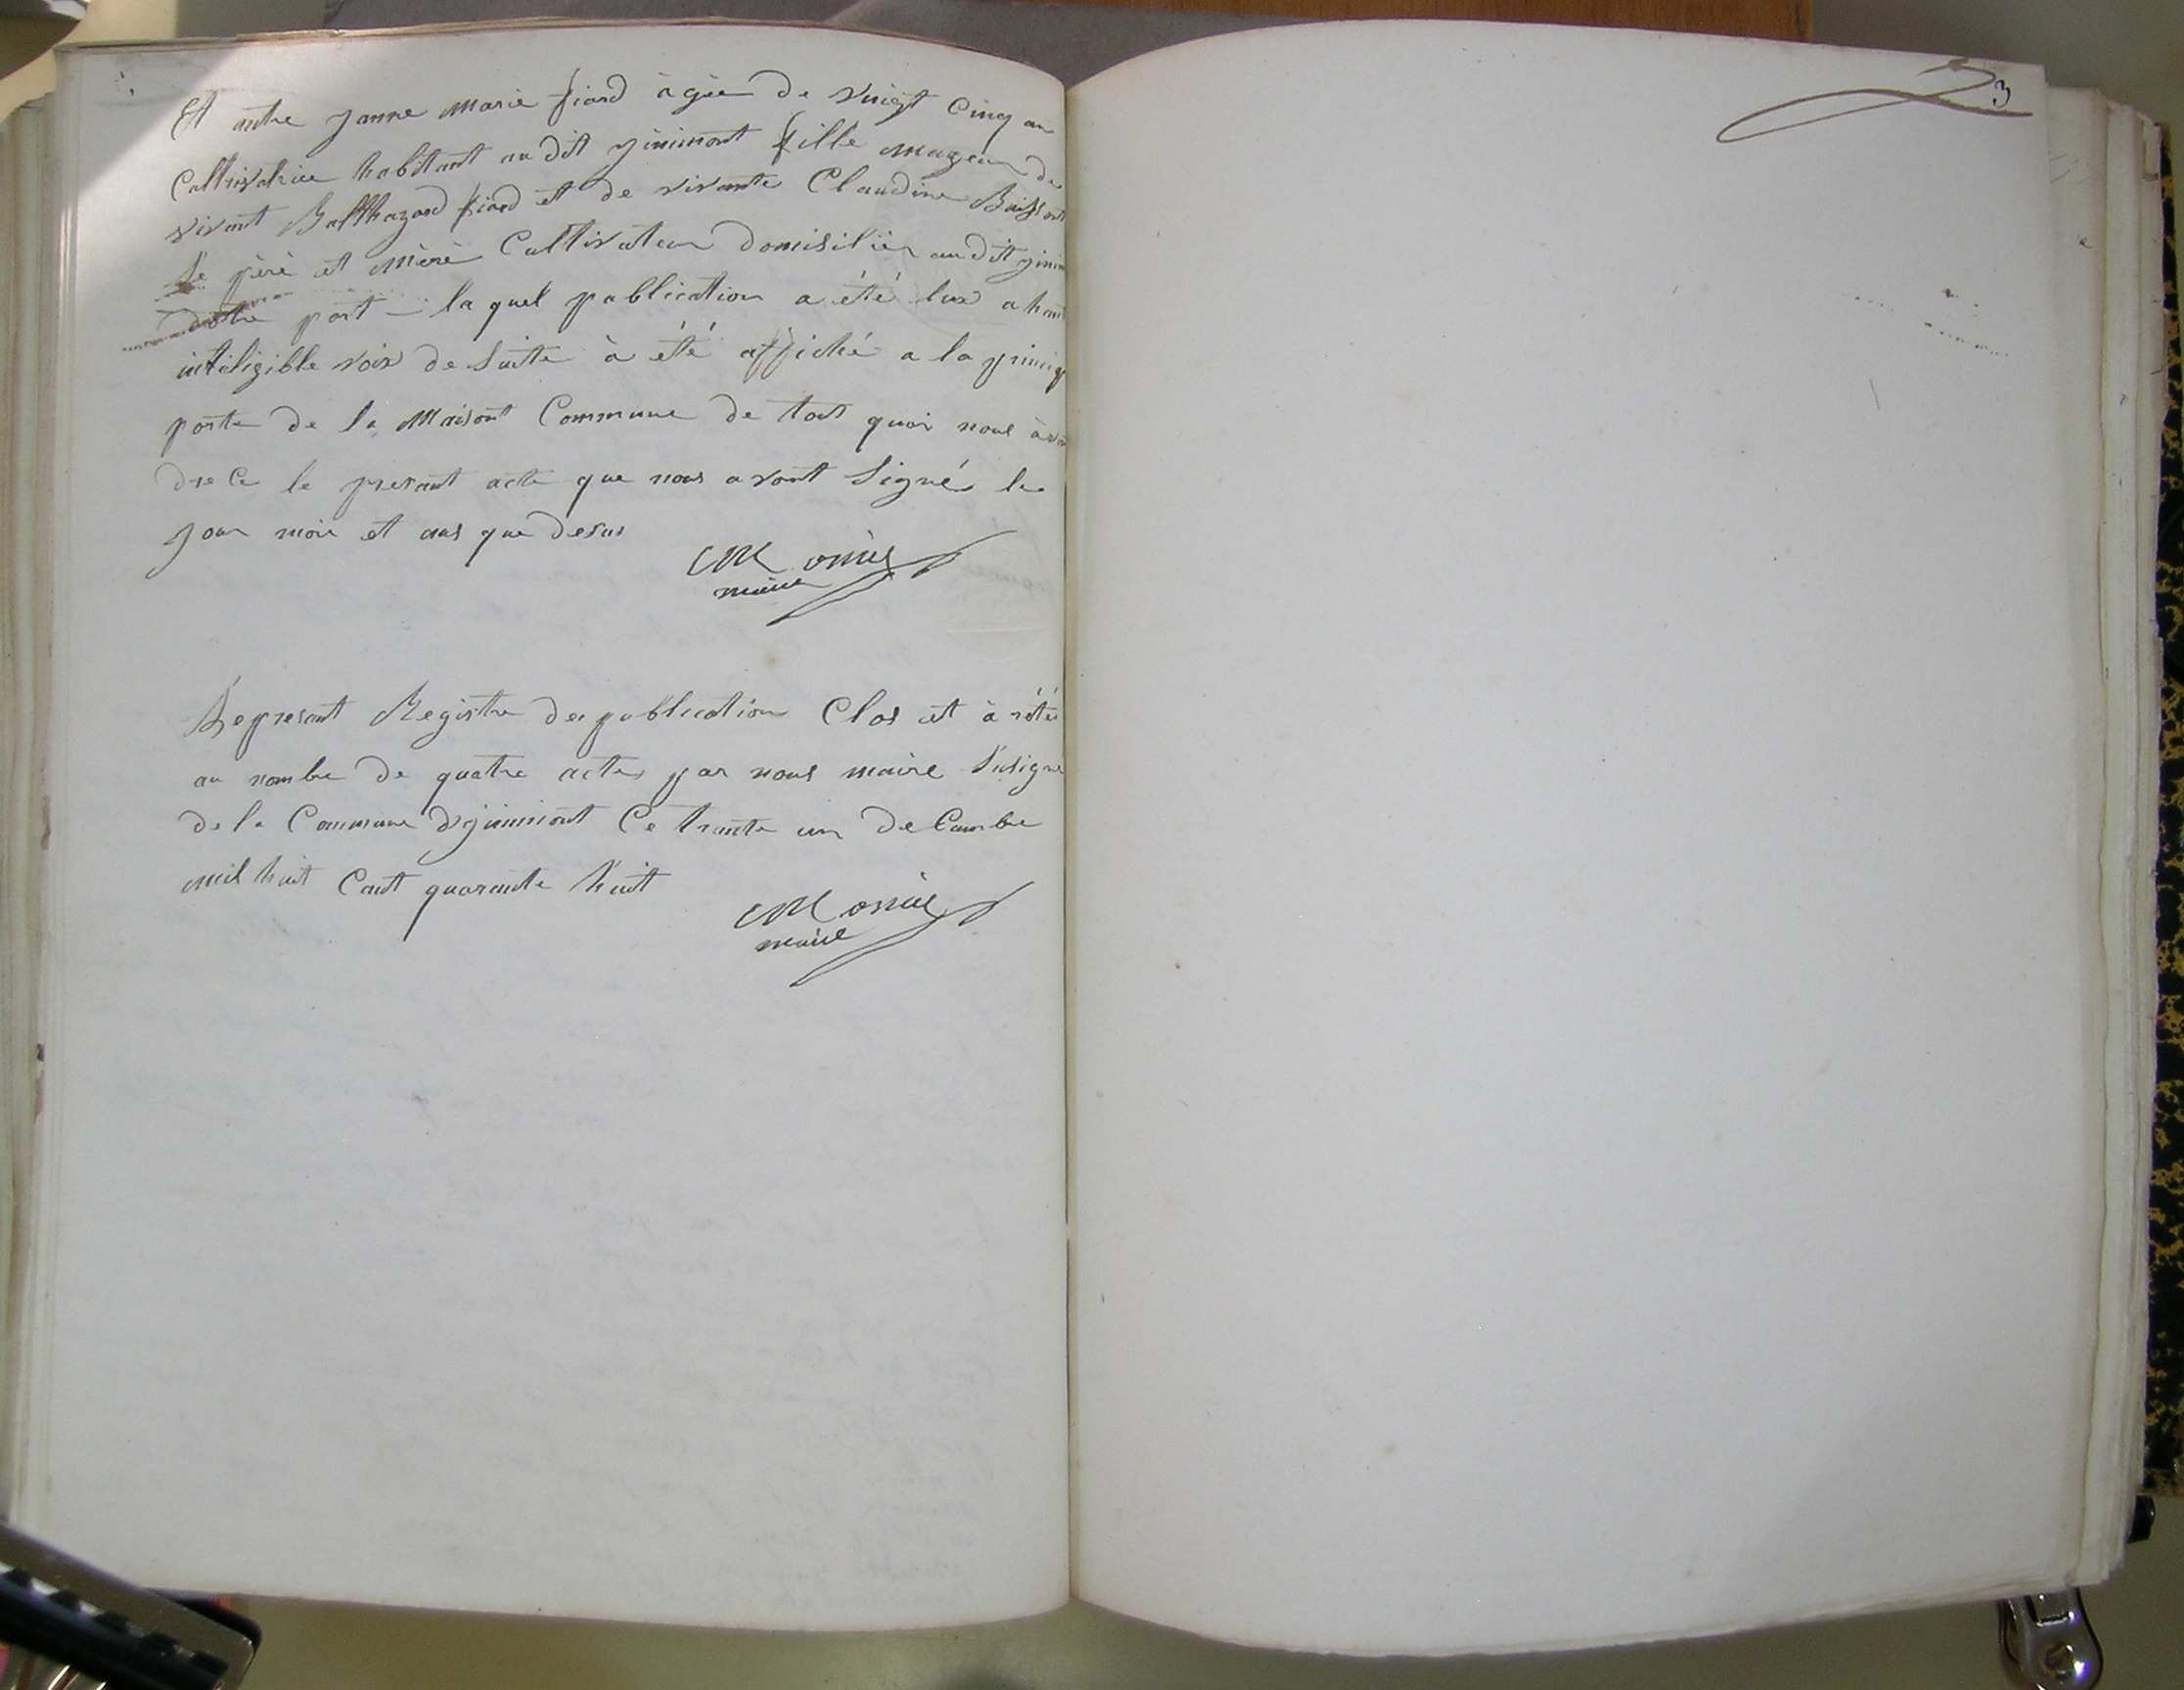 3
Et autre Janne Marie fiard àgée de Vingt Cinq an
Cultivatrice habitant au dit jinimont fille mageur de
vivant Balthazard fiard et de vivante Claudine Buisson
Le père et Mère Cultivateur domisilier au dit jinim
dotre part – la quel publication a été lue a haut
inteligible voix de Suite à été affiché a la princip
porte de la Maisont Commune de tout quoi nous àvon
dreCe le presant acte que nous avont Signé le
jour mois et ans que desus
Monier
maire
Le presant Registre de publication Clos et à rété
au nombre de quatre actes par nous maire Susigne
de la Commune djinimont Ce trante un deCambre
mil huit Cant quarante huit
Monier
maire